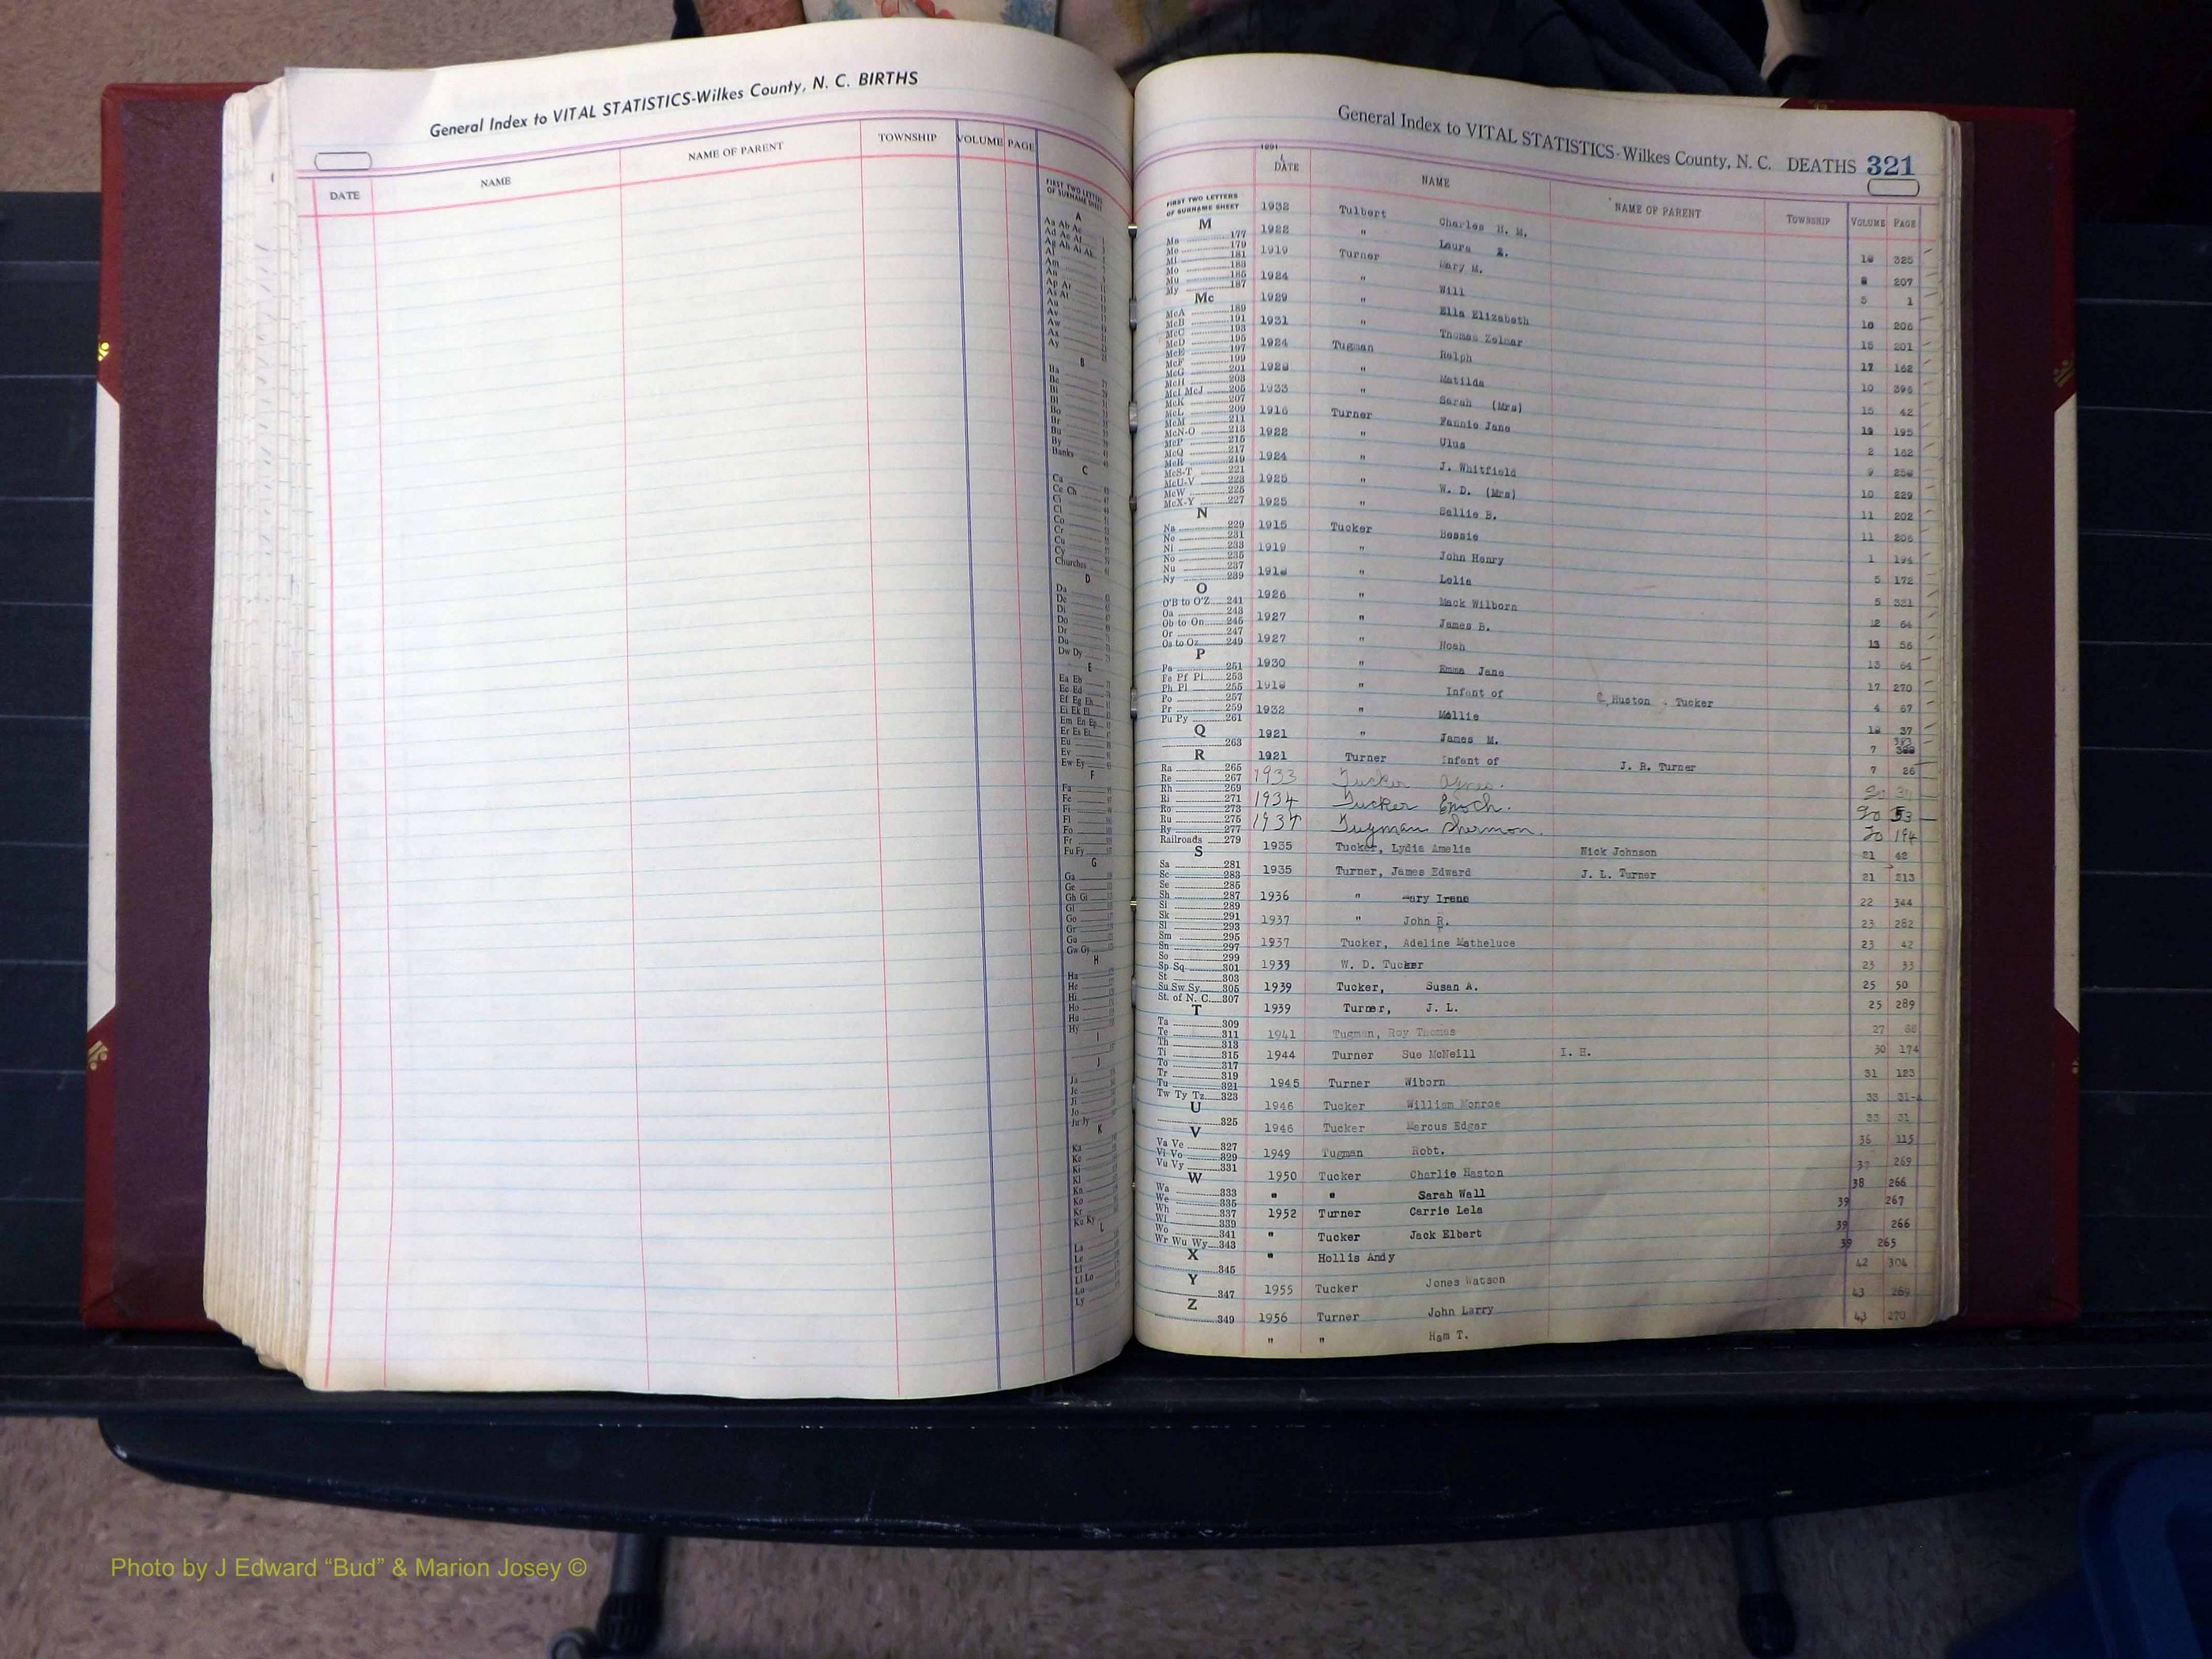 General Index to VITAL STATISTICS-Wilkes County, N. C. BIRTHS
DATE NAME NAME OF PARENT TOWNSHIP VOLUME PAGE
FIRST TWO LETTERS OF SURNAME SHEET
A
Aa Ab Ac
Ad Ae Af
Ag Ah Ai Ak
Al
Am
An
Ap Ar
As At
Au
Av
Aw
Ax
Ay
B
Ba
Be
Bi
Bl
Bo
Br
Bu
By
Banks
C
Ca
Ce Ch
Ci
Cl
Co
Cr
Cu
Cy
Churches
D
Da
De
Di
Do
Dr
Du
Dw Dy
E
Ea Eb
Ec Ed
Ef Eg Eh
Ei Ek El
Em En Ep
Er Es Et
Eu
Ev
Ew Ey
F
Fa
Fe
Fi
Fl
Fo
Fr
Fu Fy
G
Ga
Ge
Gh Gi
Gl
Go
Gr
Gu
Gw Gy
H
Ha
He
Hi
Ho
Hu
Hy
I
J
Ja
Je
Ji
Jo
Ju Jy
K
Ka
Ke
Ki
Kl
Kn
Ko
Kr
Ku Ky
L
La
Le
Li
Ll Lo
Lu
Ly
General Index to VITAL STATISTICS-Wilkes County, N. C. DEATHS 321
DATE NAME NAME OF PARENT TOWNSHIP VOLUME PAGE
FIRST TWO LETTERS OF SURNAME SHEET
M
Ma 177
Me 179
Mi 181
Mo 183
Mu 185
My 187
Mc
McA 189
McB 191
McC 193
McD 195
McE 197
McF 199
McG 201
McH 203
McI McJ 205
McK 207
McL 209
McM 211
McN-O 213
McP 215
McQ 217
McR 219
McS-T 221
McU-V 223
McW 225
McX-Y 227
N
Na 229
Ne 231
Ni 233
No 235
Nu 237
Ny 239
O
O'B to O'Z 241
Oa 243
Ob to On 245
Or 247
Os to Oz 249
P
Pa 251
Pe Pf Pi 253
Ph Pl 255
Po 257
Pr 259
Pu Py 261
Q
263
R
Ra 265
Re 267
Rh 269
Ri 271
Ro 273
Ru 275
Ry 277
Railroads 279
S
Sa 281
Sc 283
Se 285
Sh 287
Si 289
Sk 291
Sl 293
Sm 295
Sn 297
So 299
Sp Sq 301
St 303
Su Sw Sy 305
St. of N. C. 307
T
Ta 309
Te 311
Th 313
Ti 315
To 317
Tr 319
Tu 321
Tw Ty Tz 323
U
325
V
Va Ve 327
Vi Vo 329
Vu Vy 331
W
Wa 333
We 335
Wh 337
Wi 339
Wo 341
Wr Wu Wy 343
X
345
Y
347
Z
349
1932 Tulbert Charles H. M. 325
1922 " Laura 207
1919 Turner Mary M. 5 1
1924 " Will 10 206
1929 " Ella Elizabeth 15 201
1931 " Thomas Zelmar 162
1924 Tugman Ralph 10 396
" Matilda 15 42
1933 " Sarah (Mrs) 19 195
1916 Turner Fannie Jane 2 162
1922 " Ulus 9
1924 " J. Whitfield 10 229
1925 " W. D. (Mrs) 11 202
1925 " Sallie B. 11 206
1915 Tucker Bessie 1 194
1919 " John Henry 5 172
" Lelia 5 331
1926 " Mack Wilborn 12 64
1927 " James B. 13 56
1927 " Noah 13 64
1930 " Emma Jane 17 270
" Infant of C. Huston Tucker 4 67
1932 " Mollie 37
1921 " James M. 7 383
1921 Turner Infant of J. R. Turner 7 26
1933 Tucker Agnes.
1934 Tucker Enoch. 20 53
1934 Tugman Shermon. 20 194
1935 Tucker, Lydia Amelia Nick Johnson 21 42
1935 Turner, James Edward J. L. Turner 21 213
1936 " Mary Irene 22 344
1937 " John R. 23 282
1937 Tucker, Adeline Matheluce 23 42
1939 W. D. Tucker 23 33
1939 Tucker, Susan A. 25 50
1939 Turner, J. L. 25 289
1941 Tugman, Roy Thomas 27
1944 Turner Sue McNeill I. H. 30 174
1945 Turner Wiborn 31 123
1946 Tucker William Monroe 33
1946 Tucker Marcus Edgar 33 31
1949 Tugman Robt. 36 115
1950 Tucker Charlie Haston 37 269
" " Sarah Wall 38 266
1952 Turner Carrie Lela 39 267
" Tucker Jack Elbert 39 266
" Hollis Andy 39 265
1955 Tucker Jones Watson 42 304
1956 Turner John Larry 43 269
" " Ham T. 43 270
Photo by J Edward “Bud” & Marion Josey ©